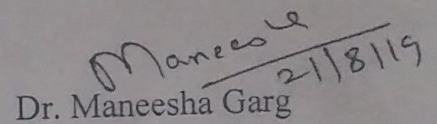 Maneesha
21/8/19
Dr. Maneesha Garg